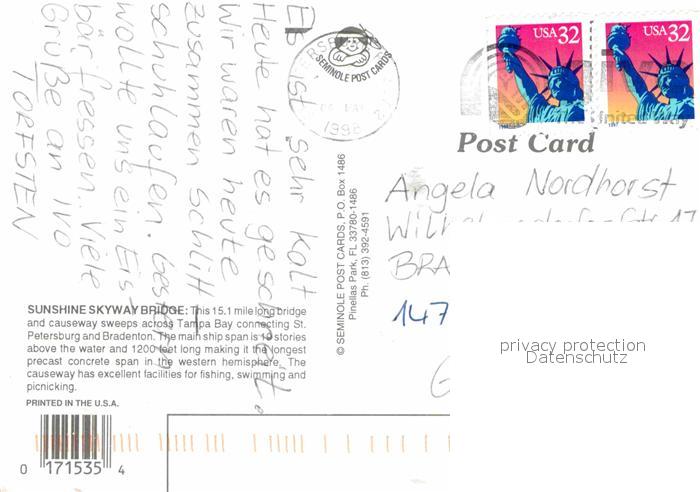 Es ist sehr kalt.
Heute hat es geschneit.
Wir waren heute
zusammen Schlitt-
schuhlaufen. Gestern
wollte uns ein Eis-
bär fressen. Viele
Grüße an IVO
TORSTEN
SEMINOLE POST CARDS
1998
USA 32
USA 32
Post Card
Angela Nordhorst
BRA
147
G
privacy protection
Datenschutz
© SEMINOLE POST CARDS, P.O. Box 1486
Pinellas Park, FL 33780-1486
Ph. (813) 392-4591
SUNSHINE SKYWAY BRIDGE: This 15.1 mile long bridge
and causeway sweeps across Tampa Bay connecting St.
Petersburg and Bradenton. The main ship span is 19 stories
above the water and 1200 feet long making it the longest
precast concrete span in the western hemisphere. The
causeway has excellent facilities for fishing, swimming and
picnicking.
PRINTED IN THE U.S.A.
0 171535 4